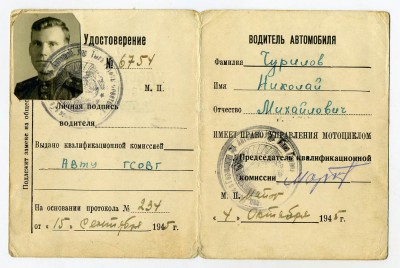 Удостоверение
№ 6754
М. П.
Личная подпись
водителя
Выдано квалификационной комиссией
Авто ГСОВГ
На основании протокола № 234
от « 15 » Сентября 1945 г
Подлежит замене на общ
ВОДИТЕЛЬ АВТОМОБИЛЯ
Фамилия Чурилов
Имя Николай
Отчество Михайлович
ИМЕЕТ ПРАВО УПРАВЛЕНИЯ МОТОЦИКЛОМ
Председатель квалификационной
комиссии
М. П. Майор
« 4 » Октября 1945 г